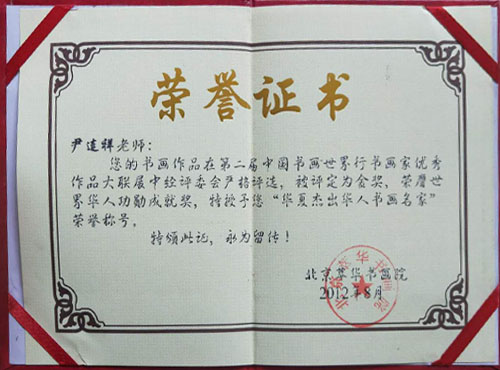 荣誉证书
尹连祥老师：
您的书画作品在第二届中国书画世界行书画家优秀
作品大联展中经评委会严格评选，被评定为金奖，荣膺世
界华人功勋成就奖，特授予您“华夏杰出华人书画名家”
荣誉称号。
特颁此记，永为留传！
北京萃华书画院
2012年8月